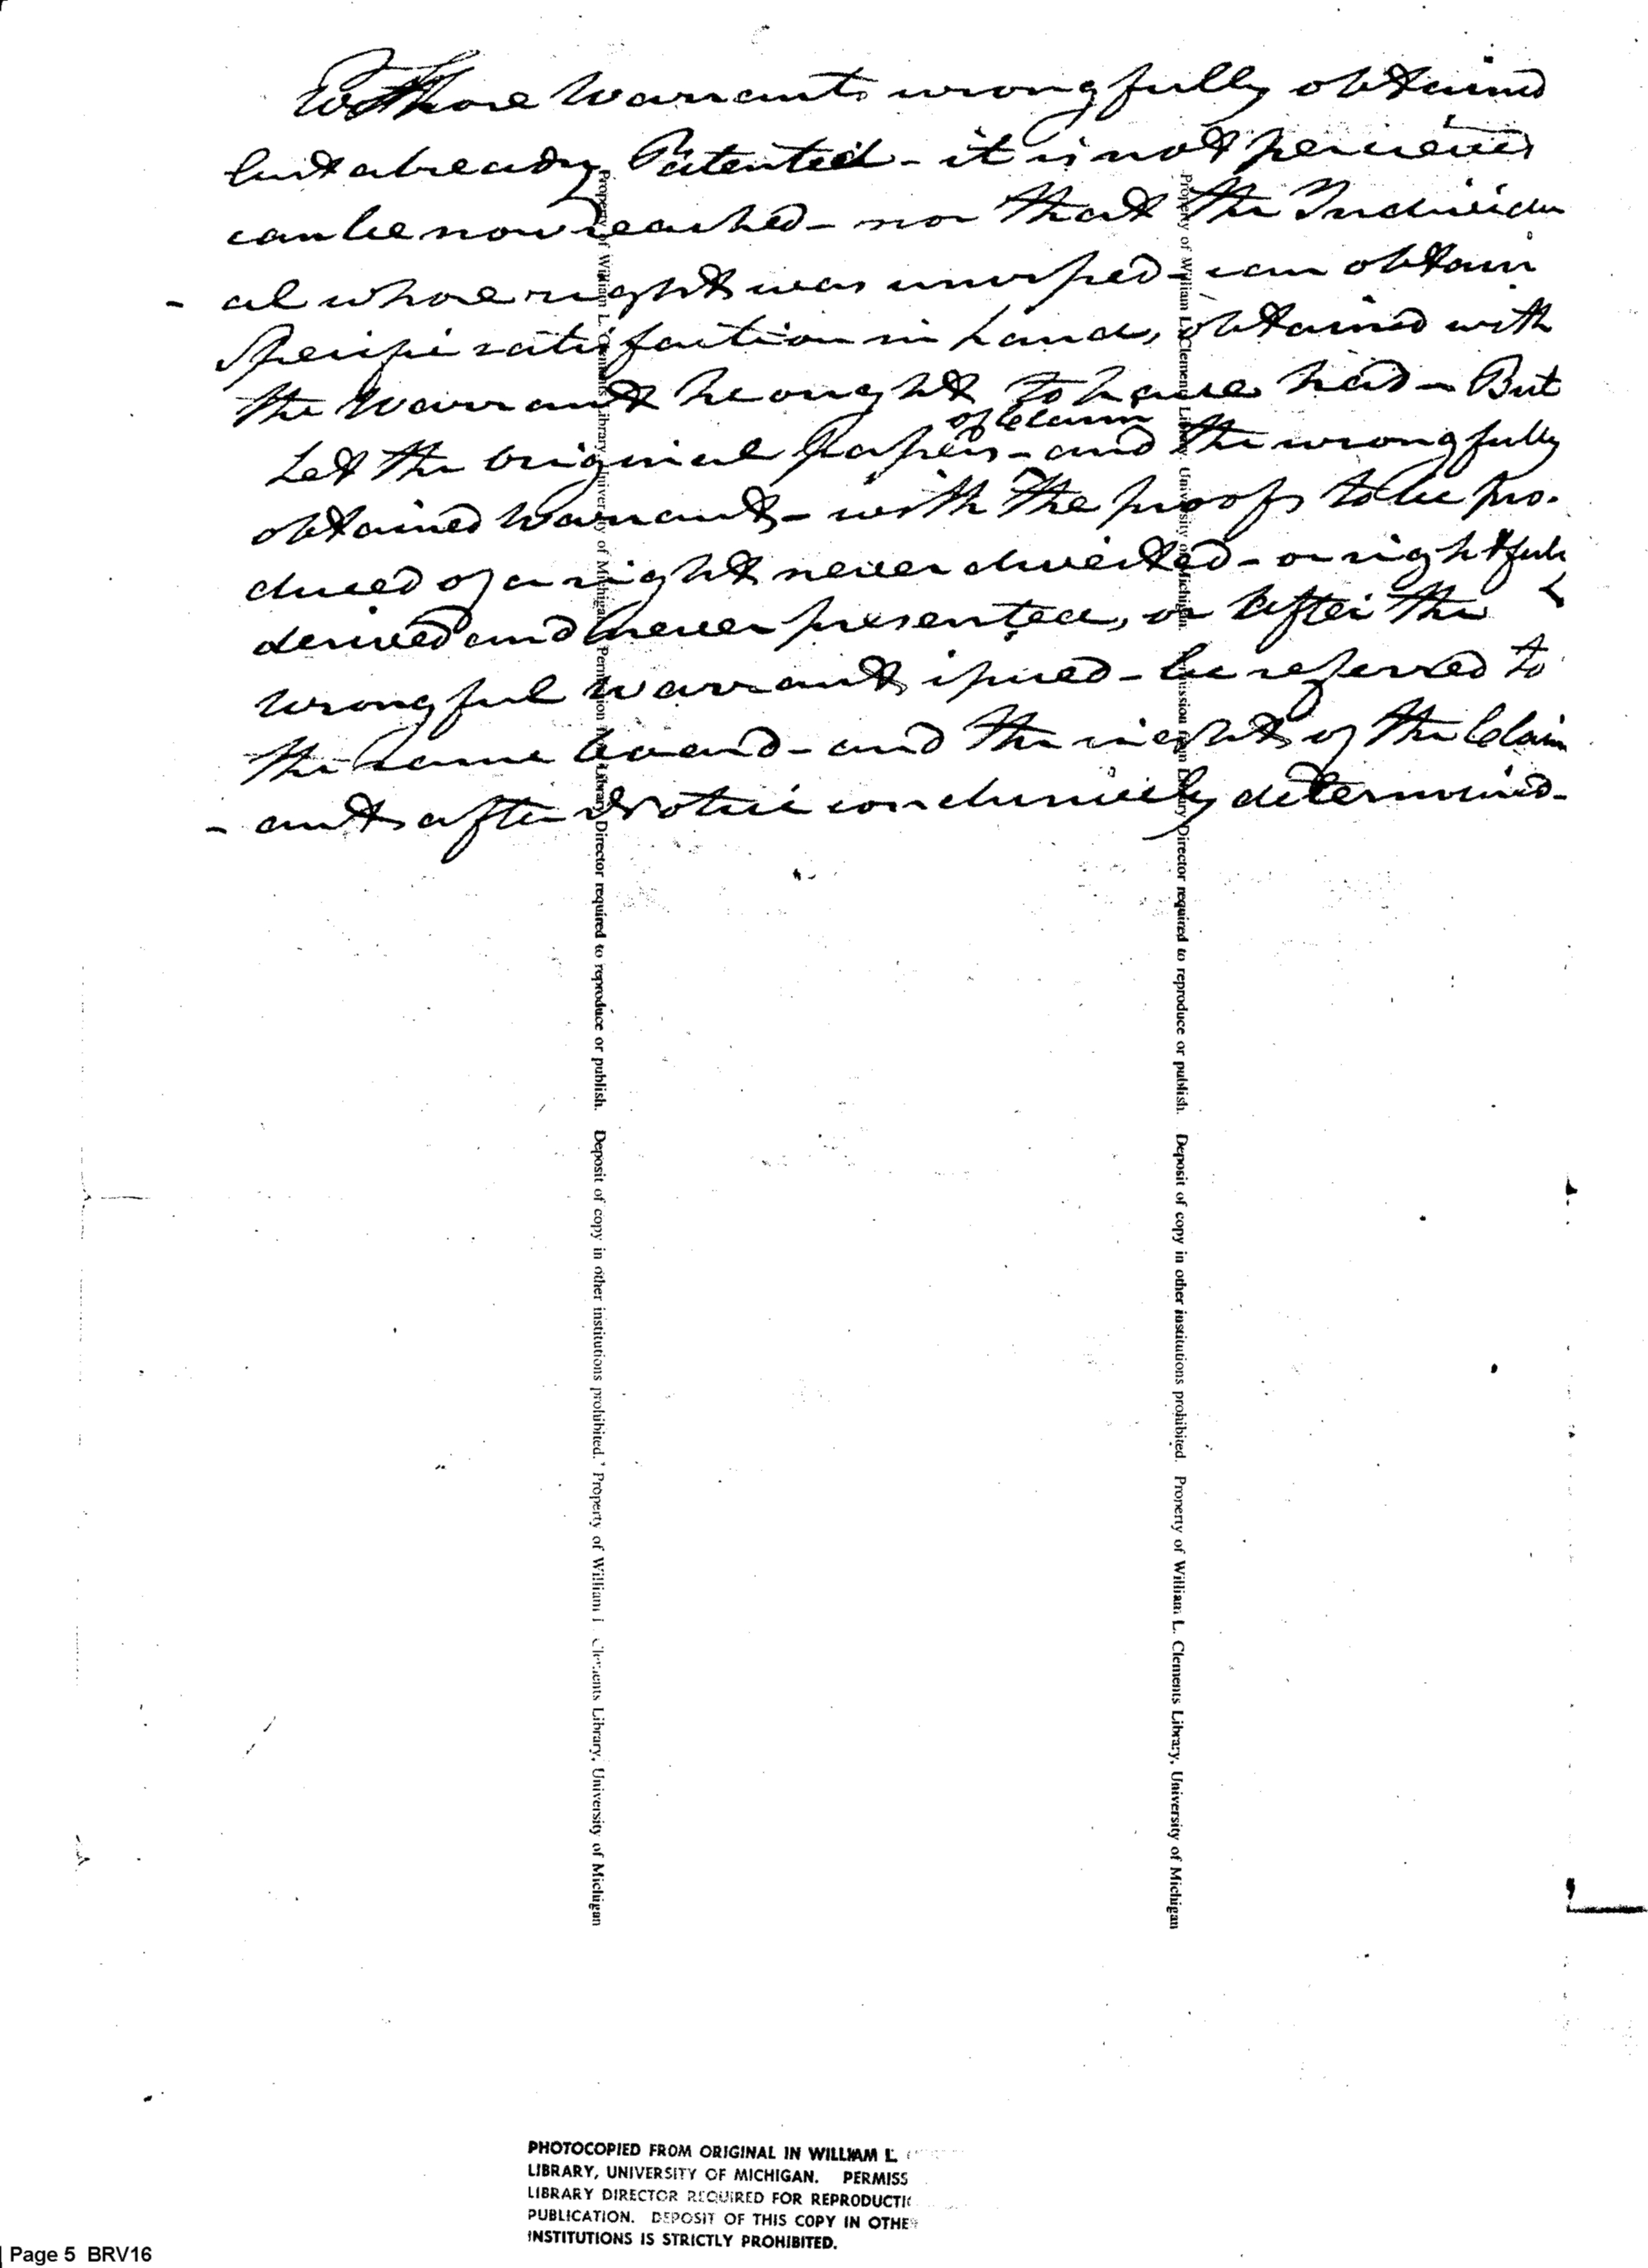 Those Warrants wrongfully obtained
but already Patented - it is not perceived
can be now reached - nor that the Individu
- al whose right was usurped - can obtain
Specific satisfaction in Lands, obtained with
the Warrant he ought to have had - But
of Claim
Let the original Papers - and the wrongfully
obtained Warrants - with the proofs to be pro-
duced of a right never divested - or rightfully
derived and never presented, or after the
wrongful warrant issued - be referred to
the same board - and the rights of the Claim
- ants after Notice conclusively determined -
Property of William L. Clements Library, University of Michigan. Permission from Library Director required to reproduce or publish. Deposit of copy in other institutions prohibited. Property of William L. Clements Library, University of Michigan
Property of William L. Clements Library, University of Michigan. Permission from Library Director required to reproduce or publish. Deposit of copy in other institutions prohibited. Property of William L. Clements Library, University of Michigan
PHOTOCOPIED FROM ORIGINAL IN WILLIAM L.
LIBRARY, UNIVERSITY OF MICHIGAN. PERMISS
LIBRARY DIRECTOR REQUIRED FOR REPRODUCTI
PUBLICATION. DEPOSIT OF THIS COPY IN OTHE
INSTITUTIONS IS STRICTLY PROHIBITED.
Page 5 BRV16